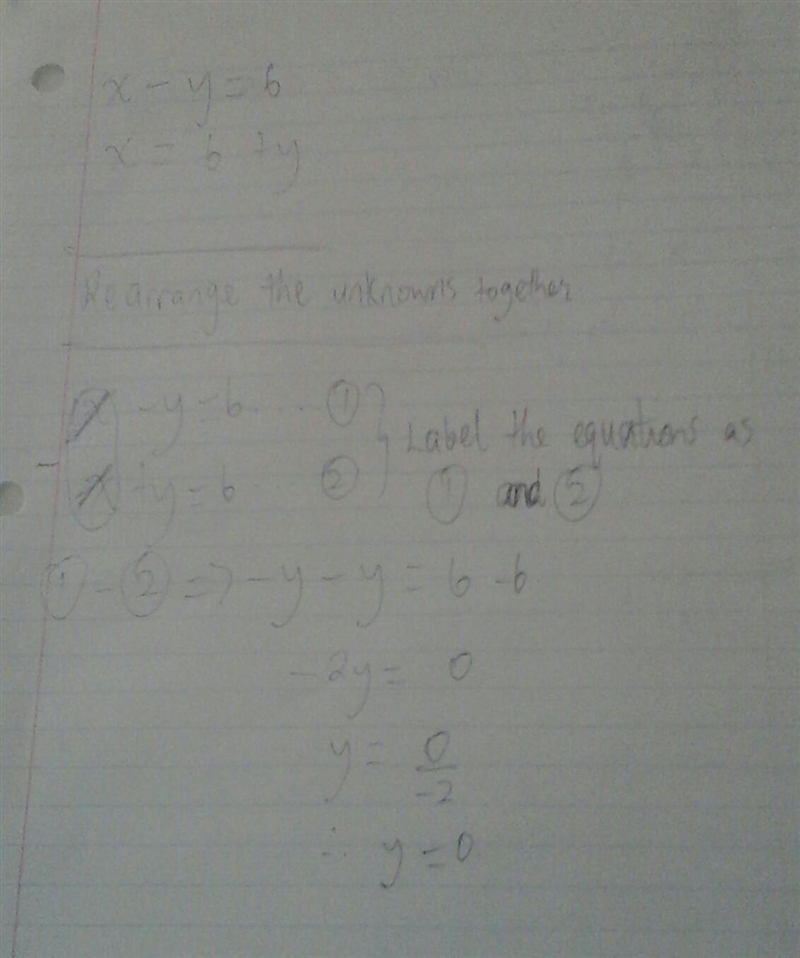 x - y = 6
x = 6 + y
Rearrange the unknowns together
x - y = 6 .... ①
x + y = 6 ... ②
Label the equations as
① and ②
① - ② => - y - y = 6 - 6
- 2y = 0
y = 0/-2
∴ y = 0